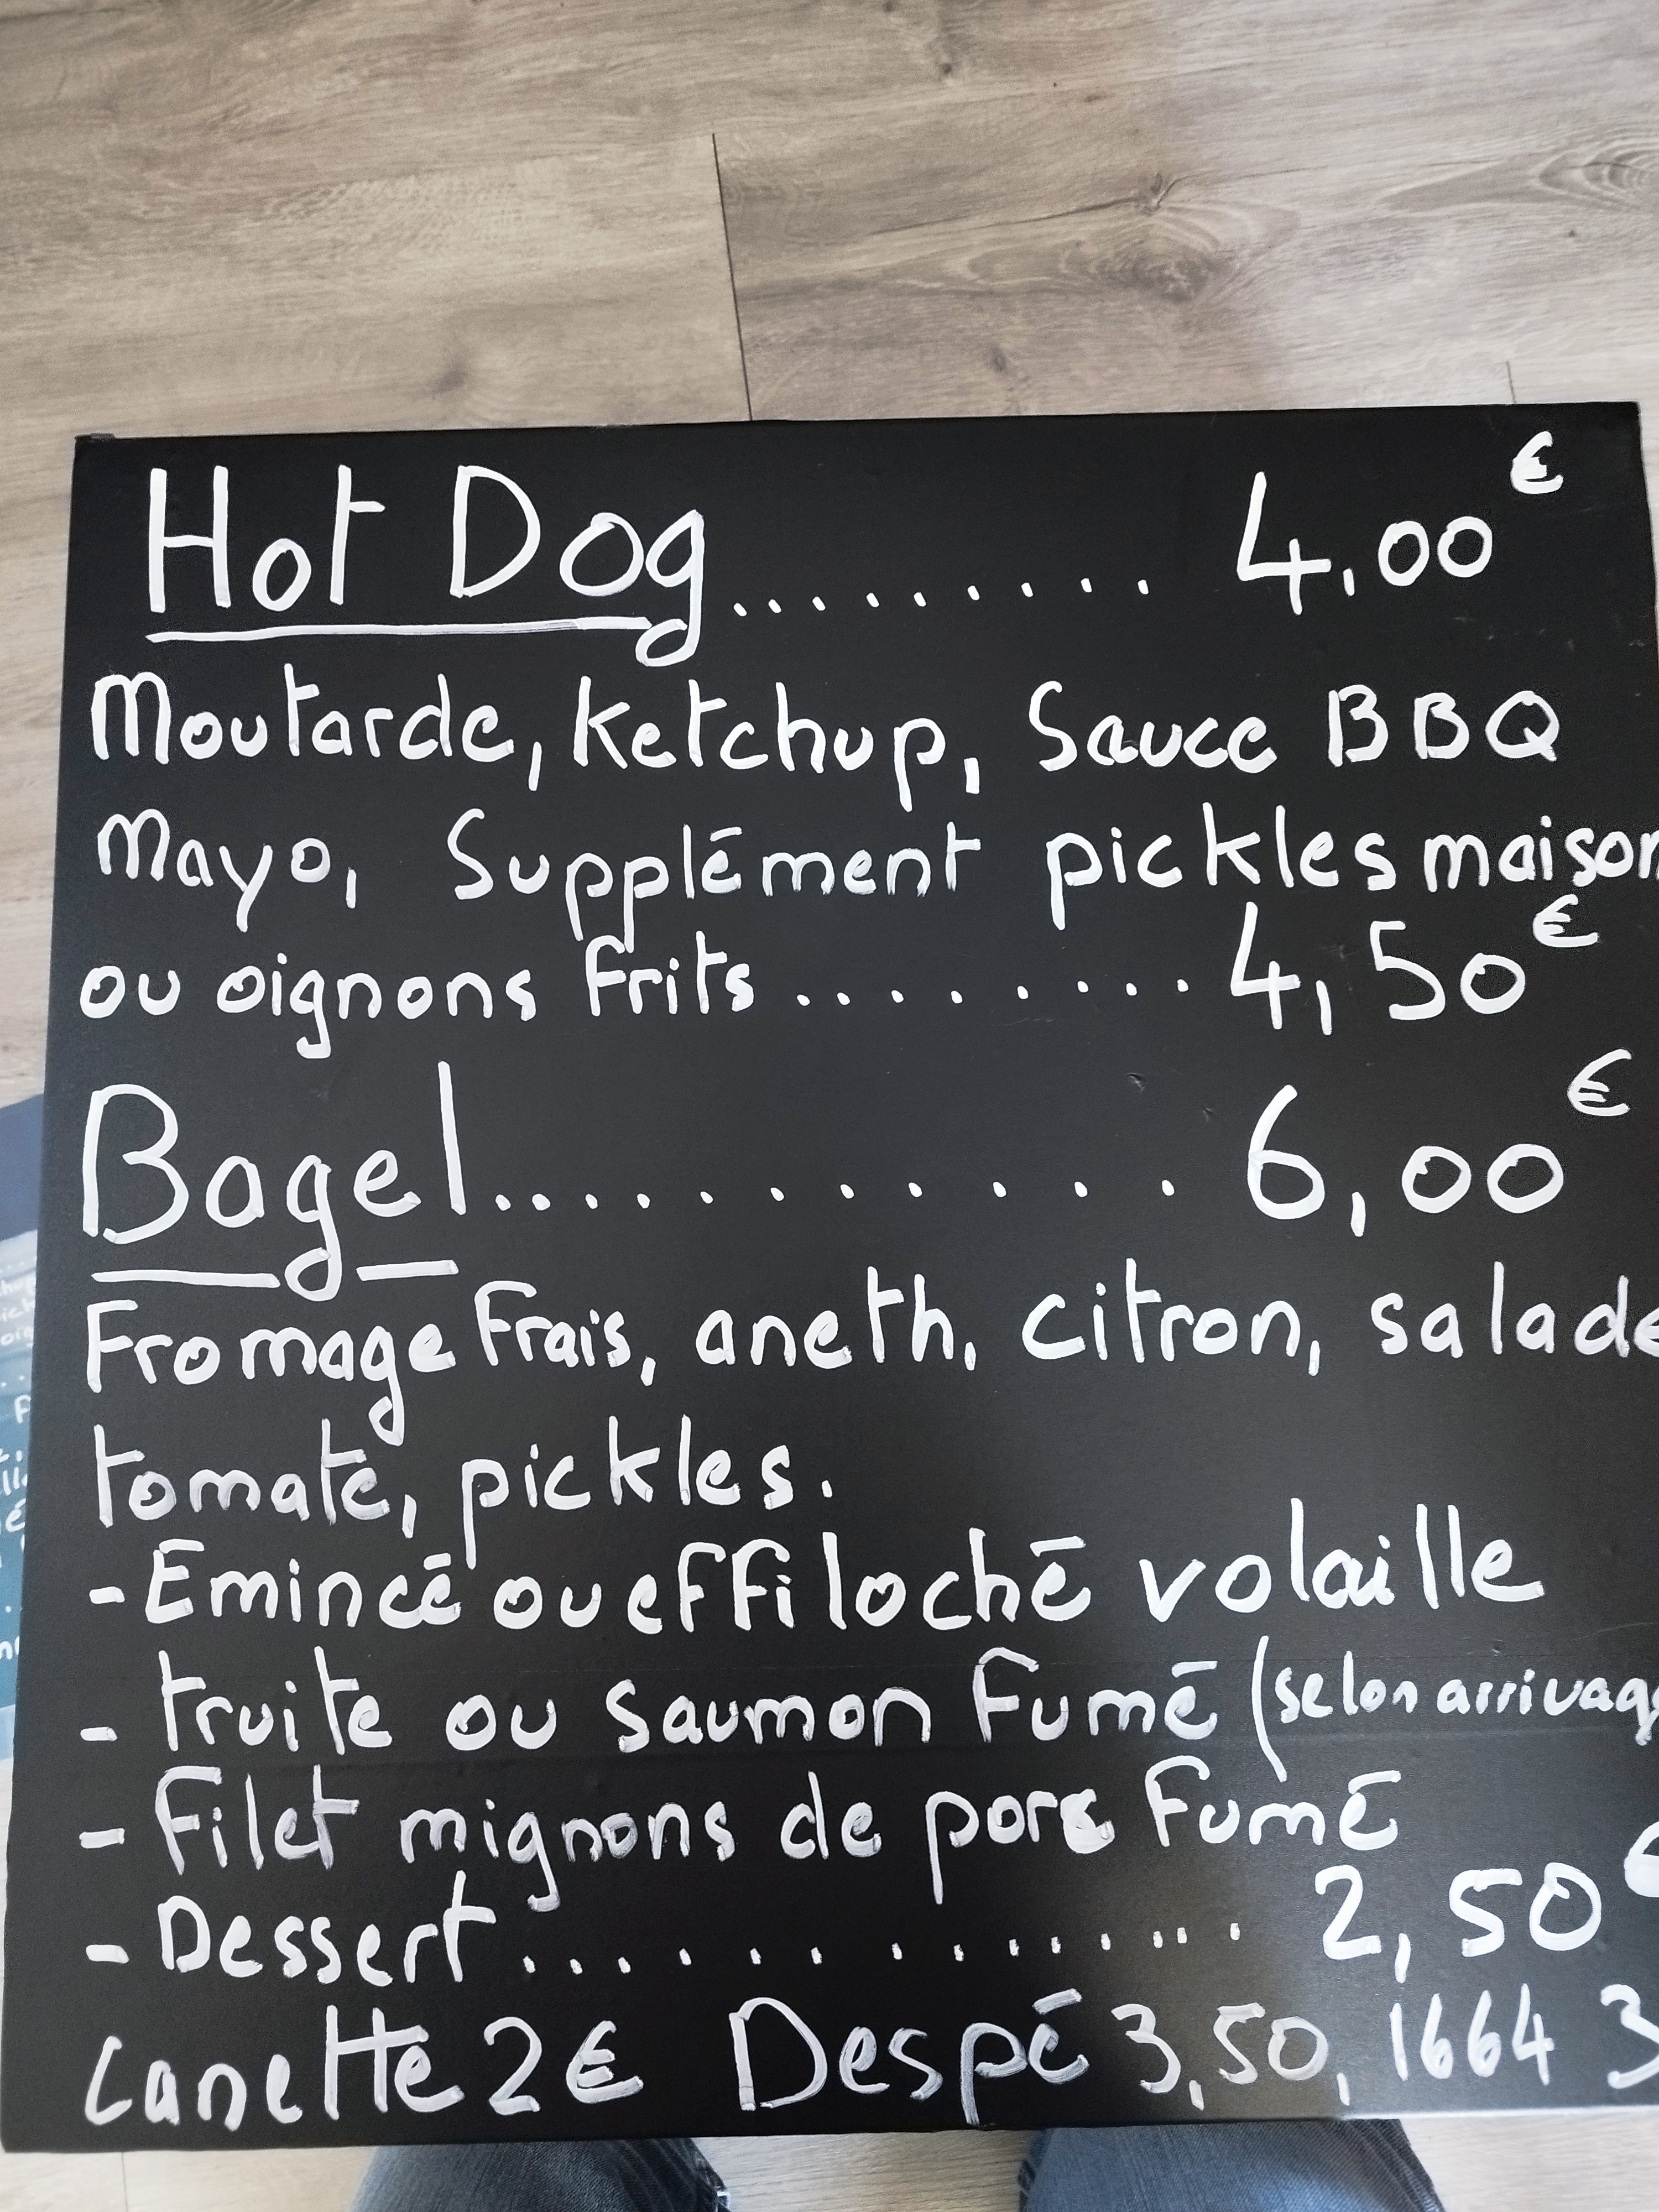 Hot Dog......... 4,00€
Moutarde, Ketchup, Sauce BBQ
Mayo, Supplément pickles maison
ou oignons frits......... 4,50€
Bagel............ 6,00€
Fromage Frais, aneth, citron, salade
tomate, pickles.
- Emincé ou effiloché volaille
- truite ou saumon Fumé (selon arrivag
- Filet mignons de porc Fumé
- Dessert............... 2,50€
Canette 2€ Despé 3,50, 1664 3